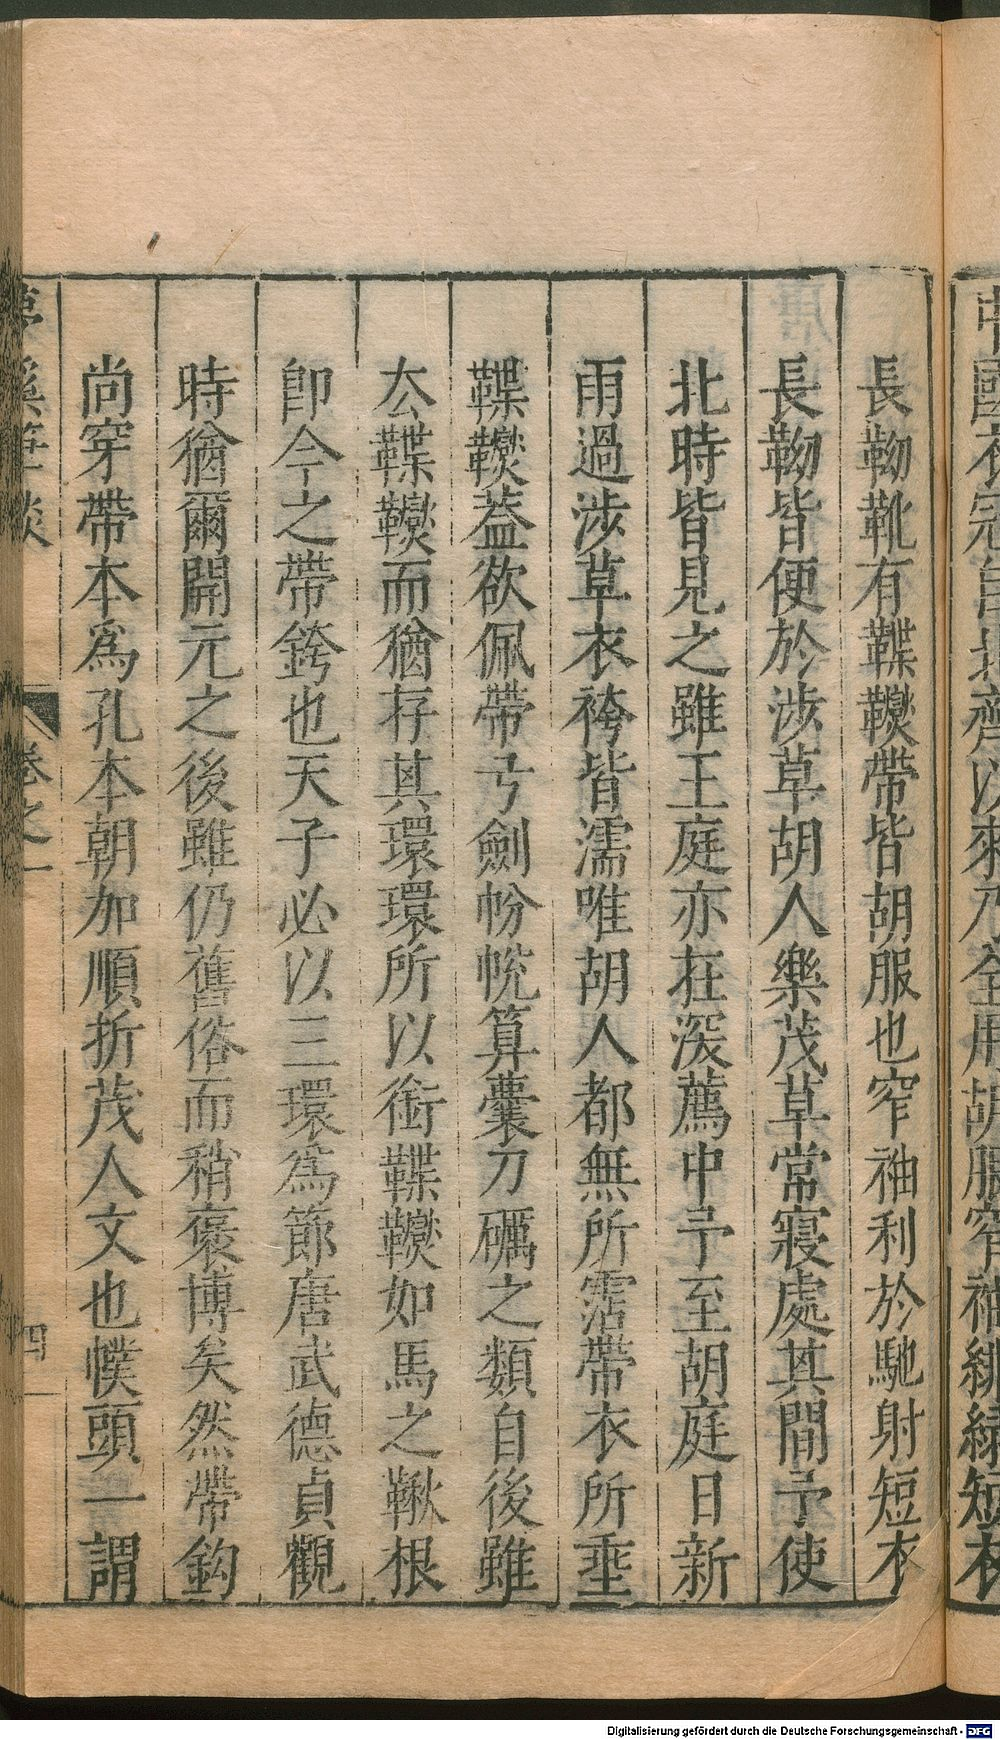 中國衣冠自北齊以來乃全用胡服窄袖緋綠短衣
長靿靴有鞢䪎帶皆胡服也窄袖利於馳射短衣
長靿皆便於涉草胡人樂茂草常寢處其間予使
北時皆見之雖王庭亦在深薦中予至胡庭日新
雨過涉草衣袴皆濡唯胡人都無所霑帶衣所垂
鞢䪎蓋欲佩帶弓劍帉帨算囊刀礪之類自後雖
去鞢䪎而猶存其環環所以銜鞢䪎如馬之鞦根
卽今之帶銙也天子必以三環爲節唐武德貞觀
時猶爾開元之後雖仍舊俗而稍褒博矣然帶鈎
尚穿帶本爲孔本朝加順折茂人文也幞頭一謂
夢溪筆談 卷之一 四
Digitalisierung gefördert durch die Deutsche Forschungsgemeinschaft - DFG